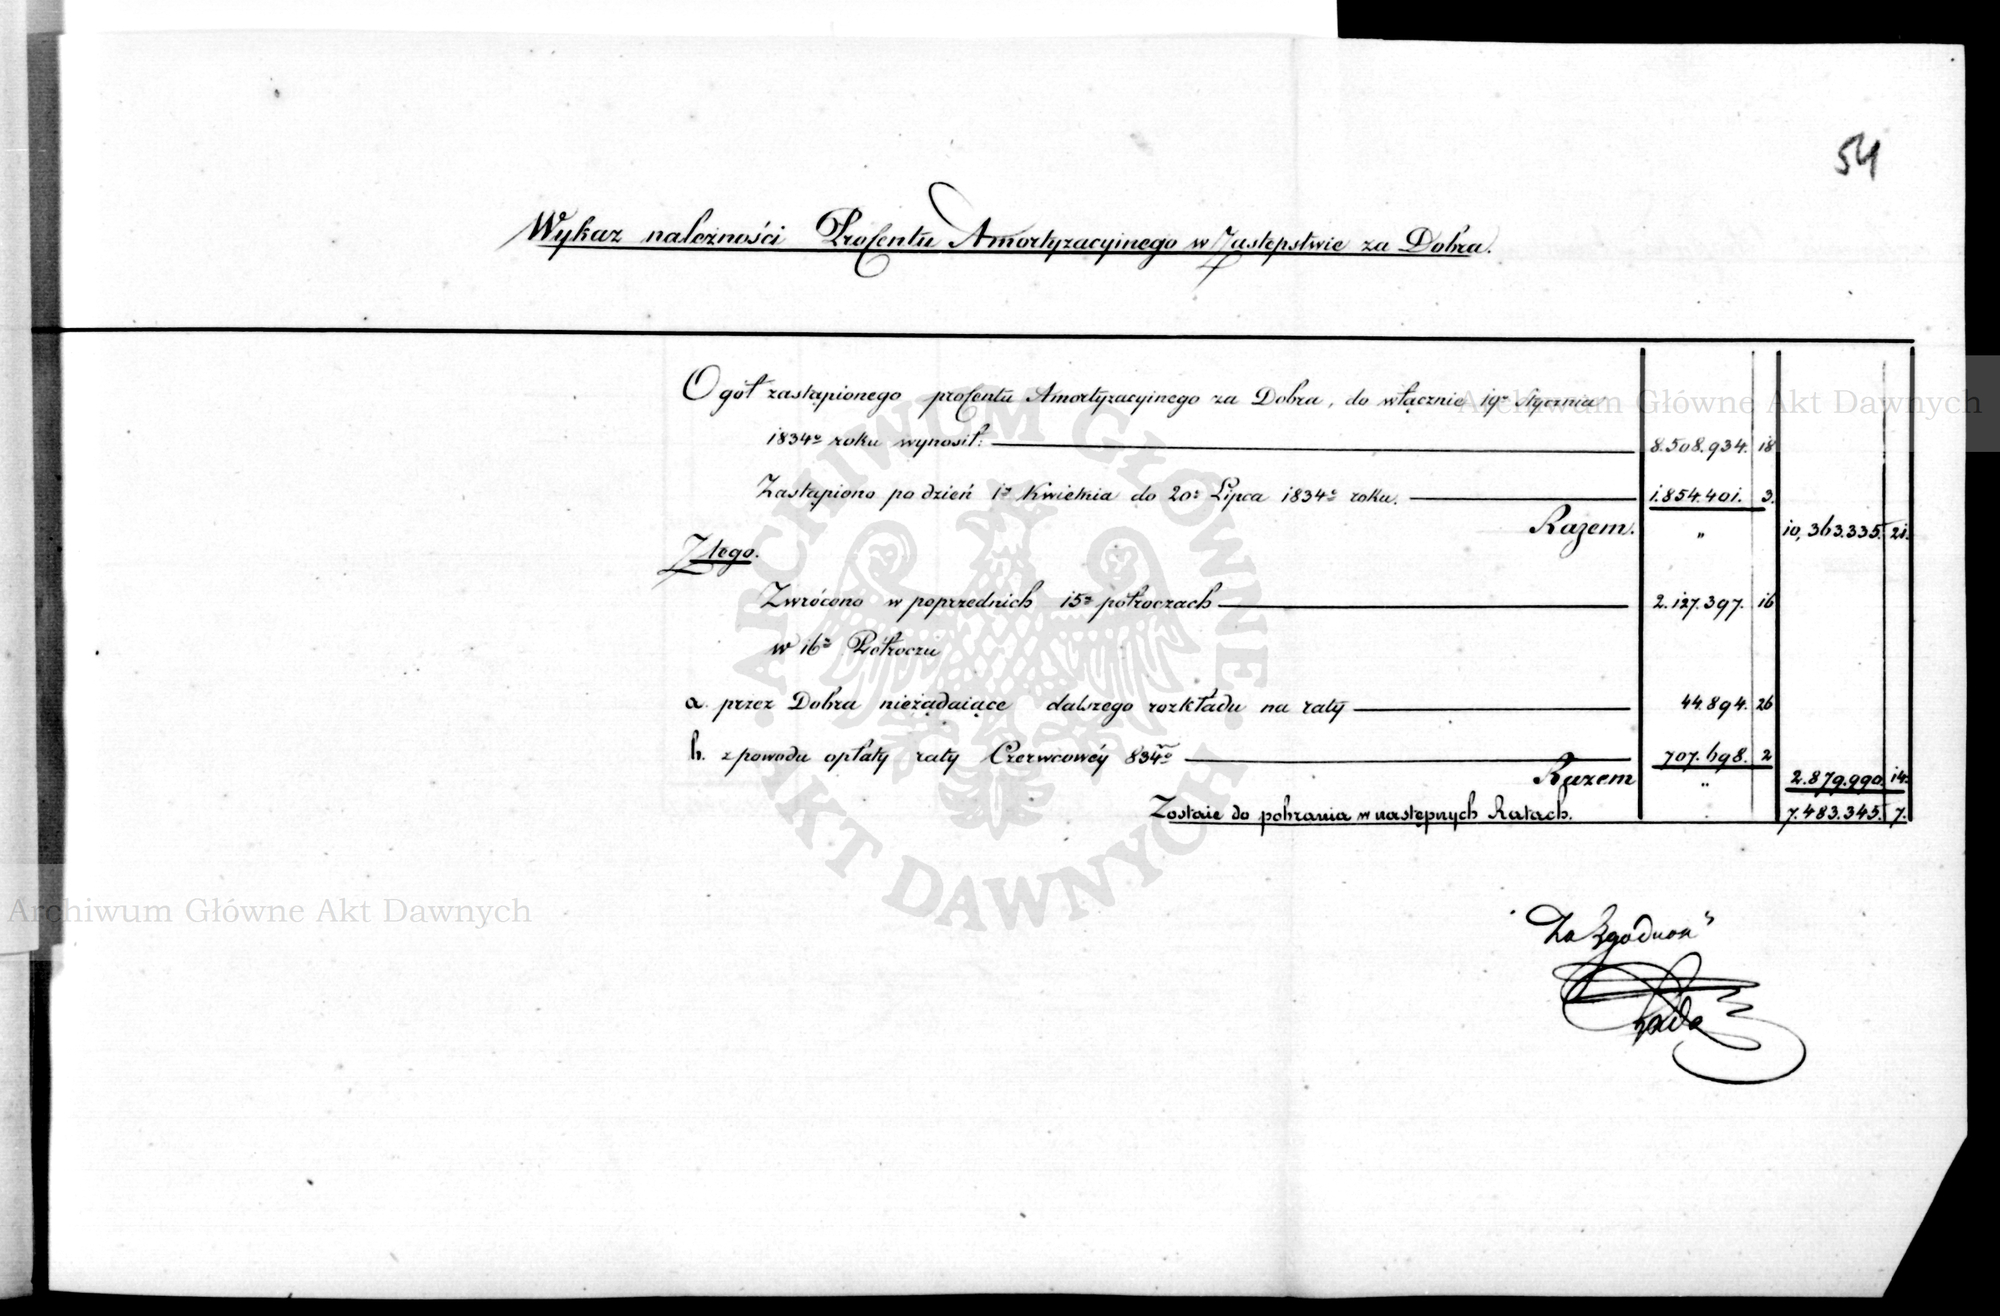 54
Wykaz należności Procentu Amortyzacyinego w Zastępstwie za Dobra.
Ogół zastąpionego procentu Amortyzacyinego za Dobra, do włącznie 19º Stycznia
1834º roku wynosił: 8.508.934. 18
Zastąpiono po dzień 1º Kwietnia do 20º Lipca 1834º roku. 1.854.401. 3.
Razem. „ 10,363.335. 21.
Z tego.
Zwrócono w poprzednich 15º półroczach 2.127.397. 16
w 16º Półroczu
a. przez Dobra nieżądaiące dalszego rozkładu na raty 44.894. 26
b. z powodu opłaty raty Czerwcowéy 834º 707.698. 2
Razem „ 2.879.990. 14.
Zostaie do pobrania w następnych Ratach. 7.483.345. 7.
Za Zgodność
ARCHIWUM GŁÓWNE AKT DAWNYCH
Archiwum Główne Akt Dawnych
Archiwum Główne Akt Dawnych